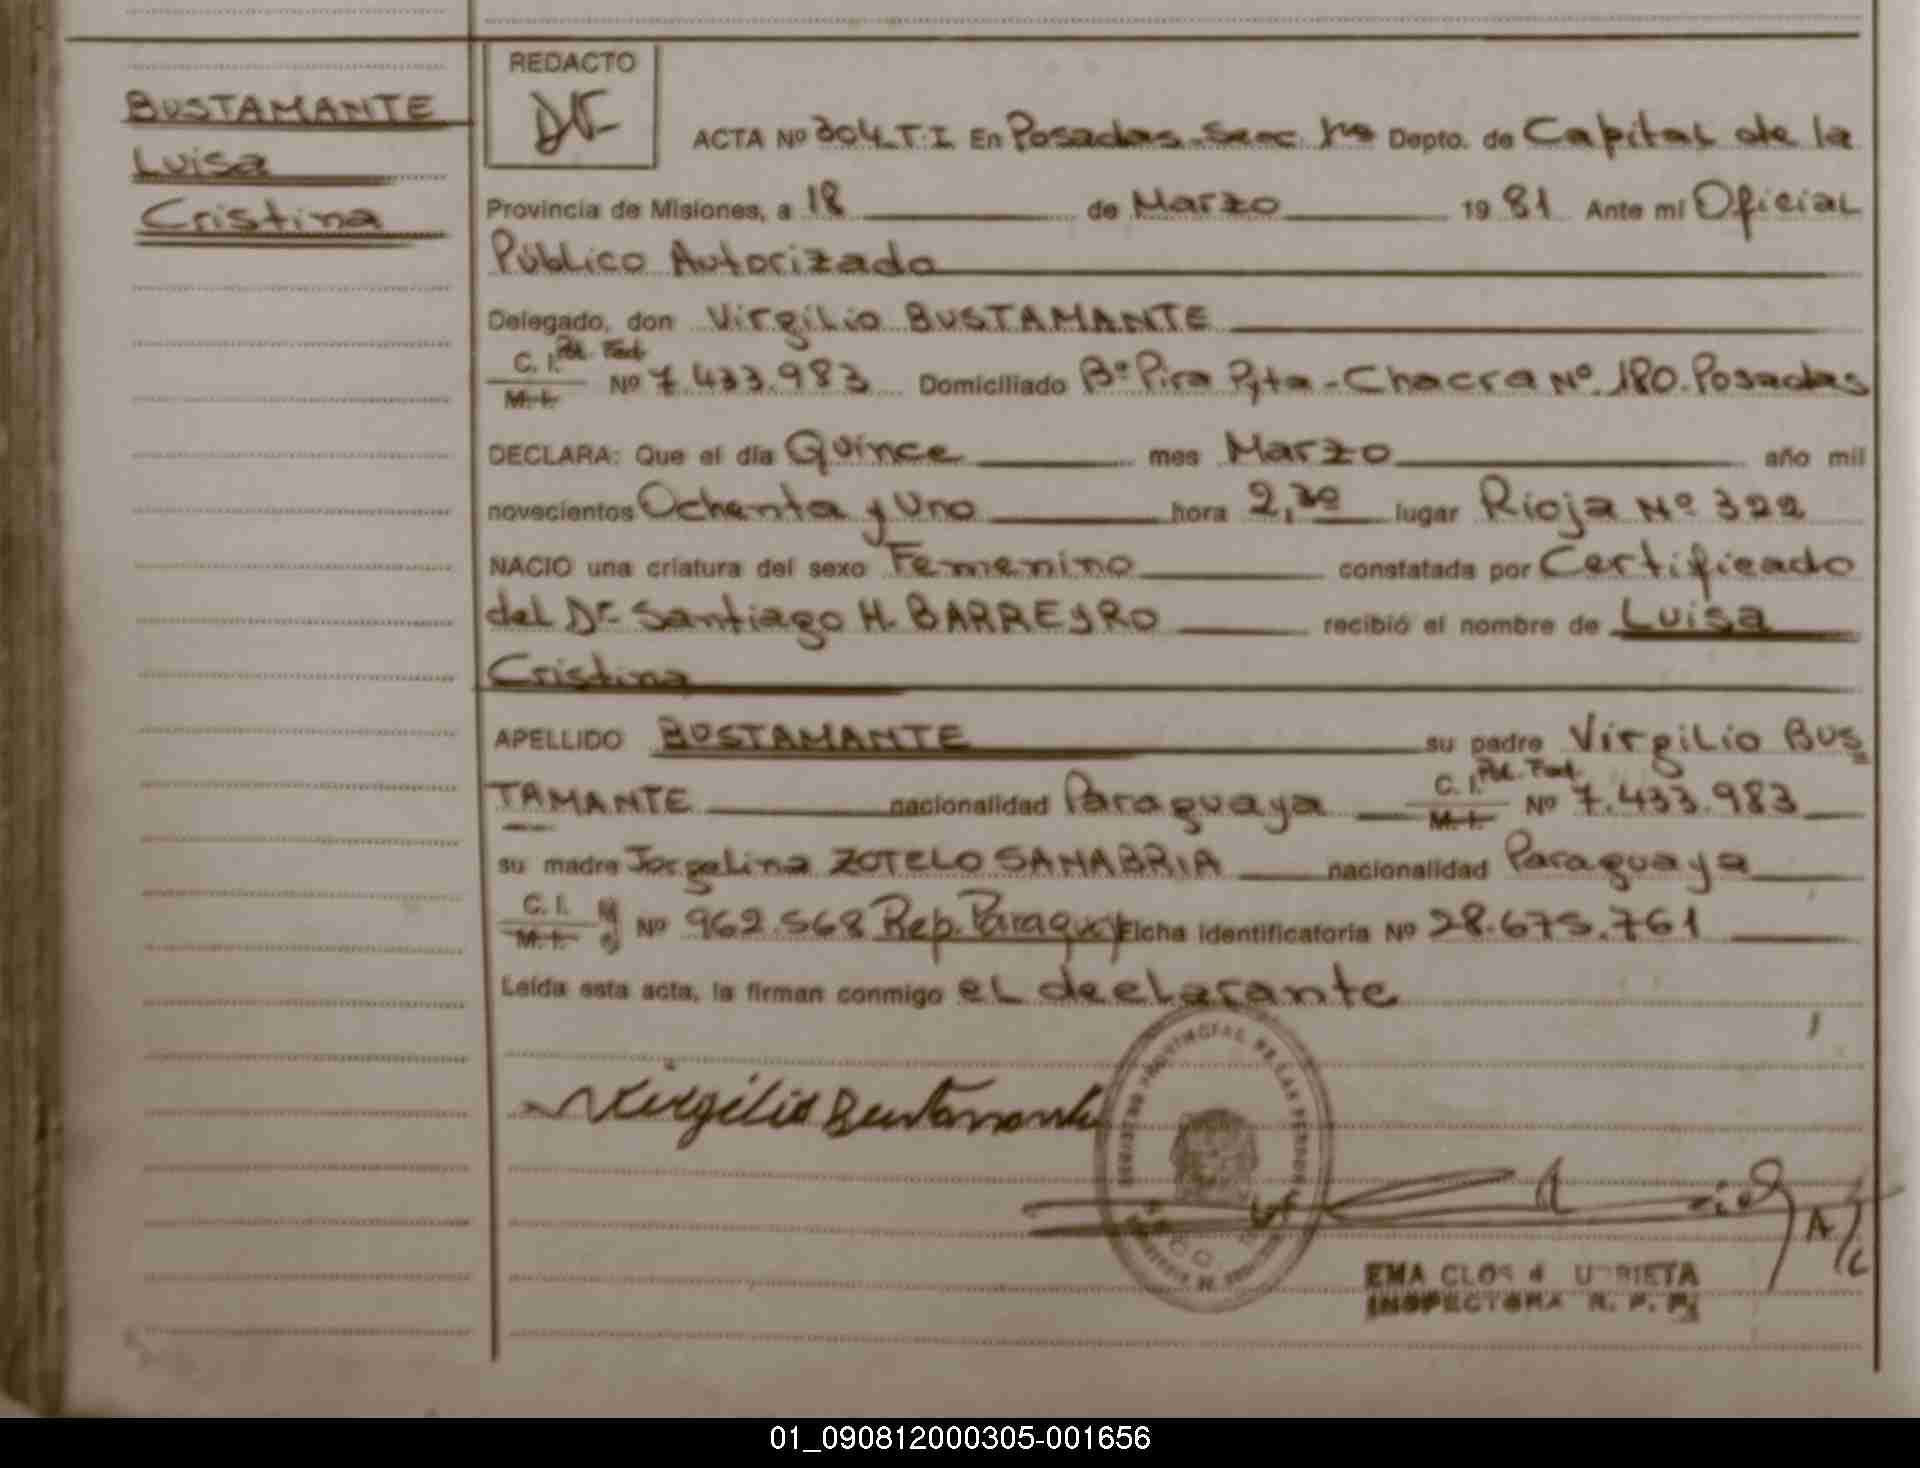 BUSTAMANTE
Luisa
Cristina
REDACTO
ACTA Nº 304.T.I. En Posadas. Secc. 1ra Depto. de Capital de la
Provincia de Misiones, a 18 de Marzo 1981 Ante mí Oficial
Público Autorizado
Delegado, don Virgilio BUSTAMANTE
C. I. Pol. Fed.
M. I. Nº 7.433.983 Domiciliado Bº Pira Pyta - Chacra Nº 180. Posadas
DECLARA: Que el día Quince mes Marzo año mil
novecientos Ochenta y Uno hora 2,30 lugar Rioja Nº 322
NACIO una criatura del sexo Femenino constatada por Certificado
del Dr. Santiago H. BARREYRO recibió el nombre de Luisa
Cristina
APELLIDO BUSTAMANTE su padre Virgilio BUS=
TAMANTE nacionalidad Paraguaya C. I. Pol. Fed. M. I. Nº 7.433.983
su madre Jorgelina ZOTELO SANABRIA nacionalidad Paraguaya
C. I. M. I. Nº 962.568 Rep. Paraguay Ficha identificatoria Nº 28.675.761
Leída esta acta, la firman conmigo el declarante
Virgilio Bustamante
REGISTRO PROVINCIAL DE LAS PERSONAS
A/C
EMA URRIETA
INSPECTORA R. P. P.
01_090812000305-001656